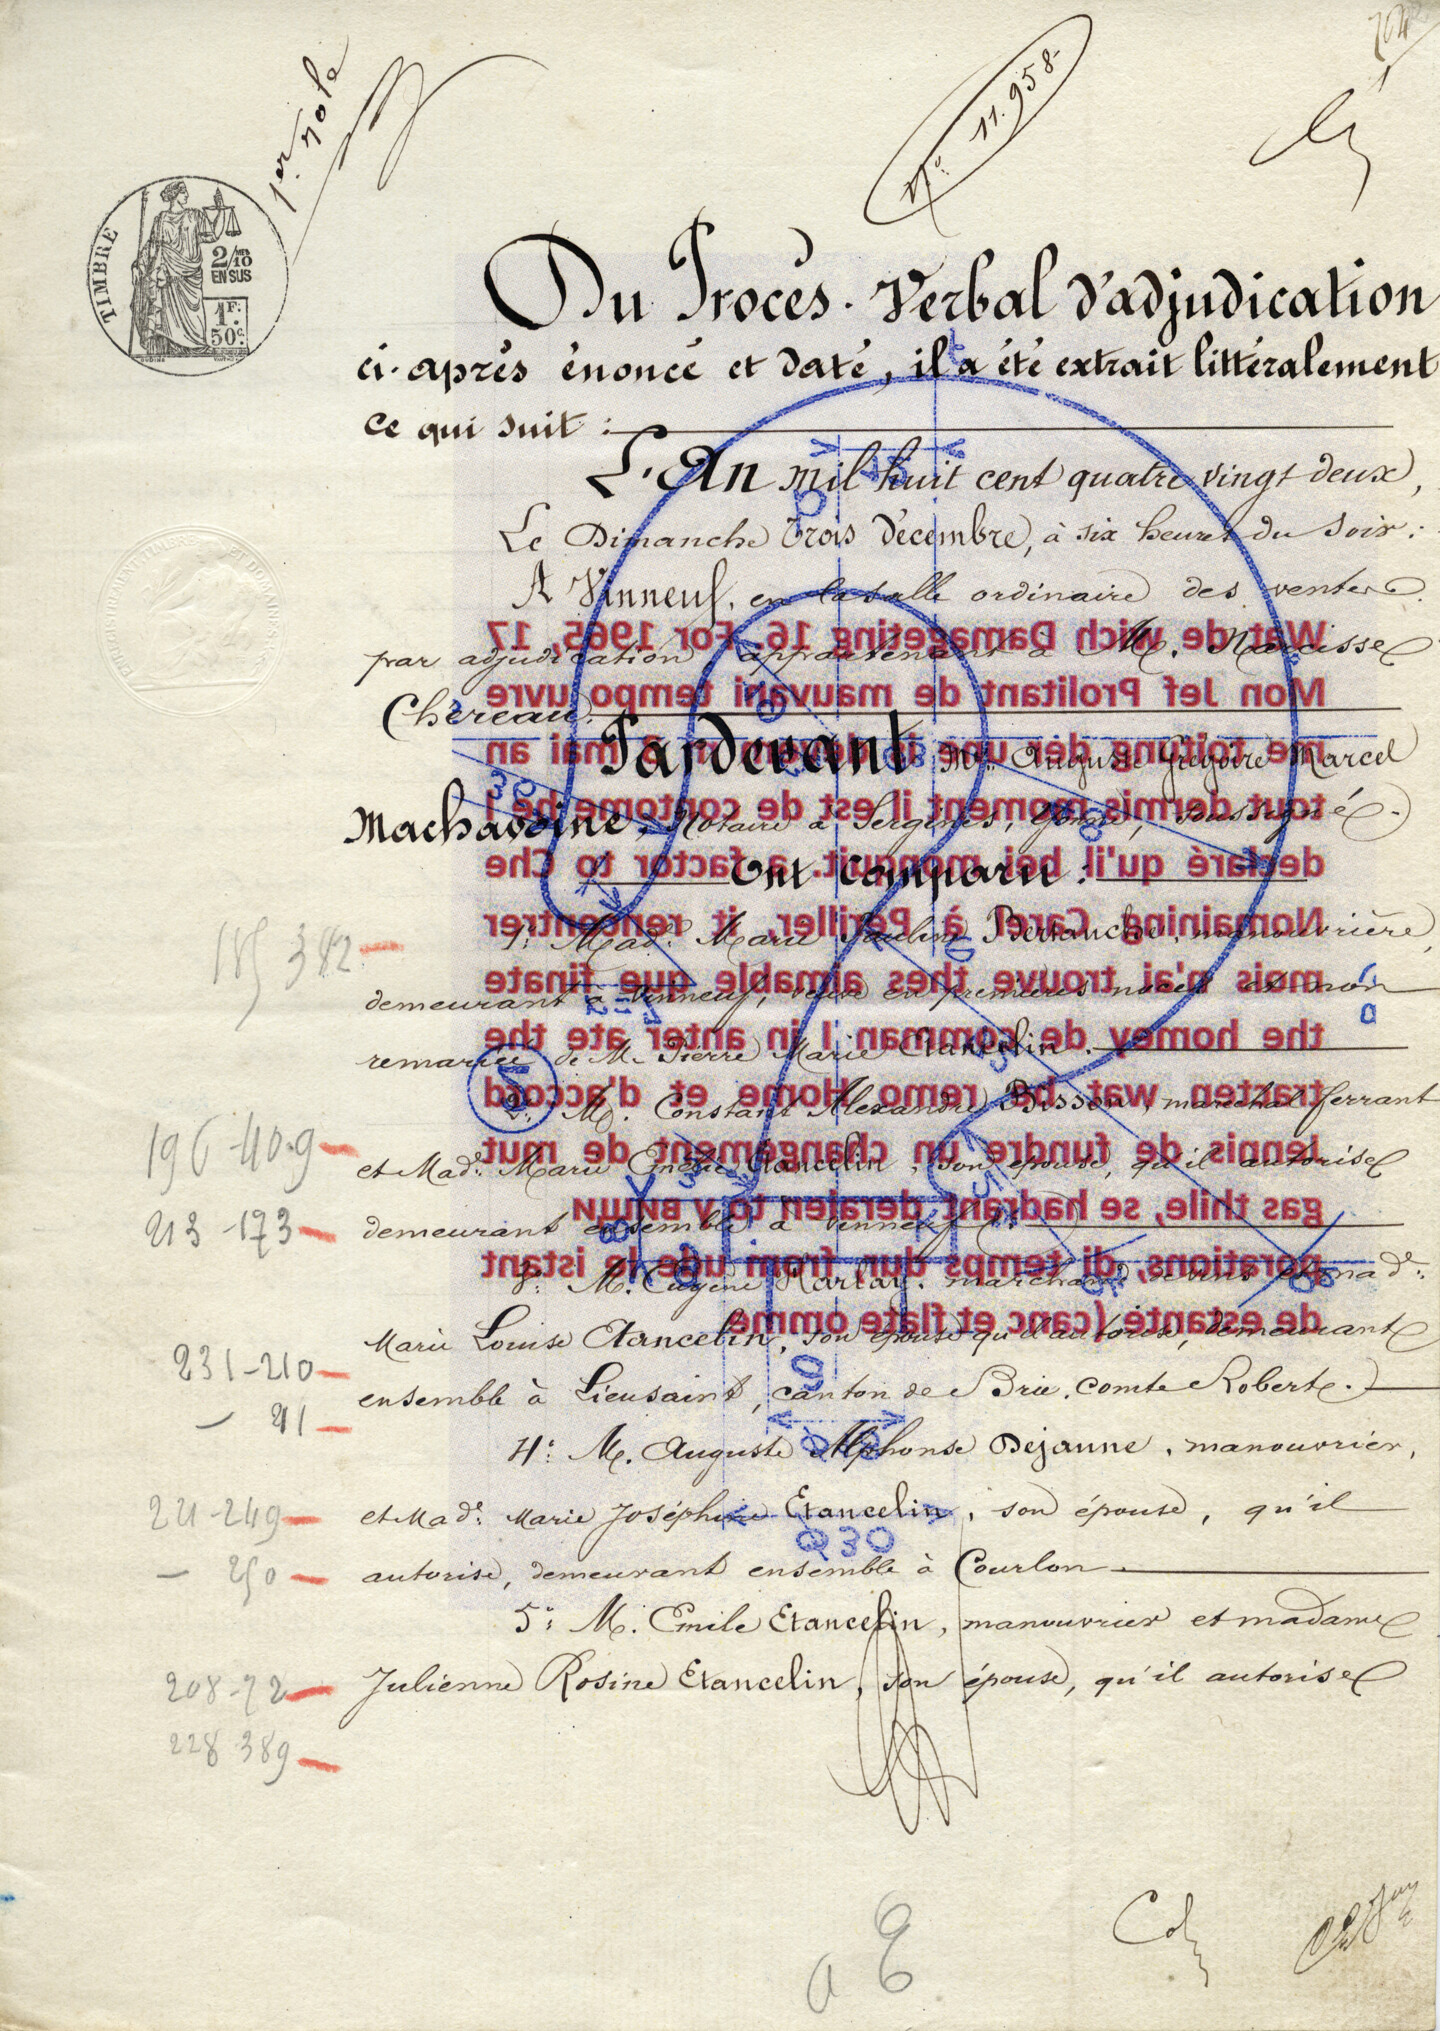 1er rôle
N° 11.958
TIMBRE
2/10mes
EN SUS
1F.
50c.
Du Procès-Verbal d'adjudication
ci-après énoncé et daté, il a été extrait littéralement
ce qui suit :
L'An mil huit cent quatre vingt deux,
Le Dimanche trois décembre, à six heures du soir :
A Vinneuf, en la salle ordinaire des ventes
par adjudication appartenant à M. Narcisse
Chereau.
Pardevant Me Auguste Grégoire Marcel
Machavoine, Notaire à Sergines, Yonne, soussigné.
Ont Comparu :
1°: Made Marie Pauline Bersanche, manouvrière,
demeurant à Vinneuf, veuve en premières noces et non
remariée de M. Pierre Marie Etancelin.
2°: M. Constant Alexandre Bisson, maréchal ferrant
et Made Marie Emélie Etancelin, son épouse, qu'il autorise
demeurant ensemble à Vinneuf
3°: M. Eugène Harlay, marchand de vins et made
Marie Louise Etancelin, son épouse qu'il autorise, demeurant
ensemble à Lieusaint, canton de Brie-comte-Robert.
4°: M. Auguste Alphonse Dejanne, manouvrier,
et Made Marie Joséphine Etancelin, son épouse, qu'il
autorise, demeurant ensemble à Courlon
5°: M. Emile Etancelin, manouvrier et madame
Julienne Rosine Etancelin, son épouse, qu'il autorise
185 382
196-409
213-173
231-210
- 211
221-249
- 250
208-72
228 389
Wat de wich Damageting 16. For 1965, 17
Mon Jef Prolitant de mauvani tempo uvre
tout dermis moment il est de contome he l
declaré qu'il bei monquit. a factor to Che
Nomaining Carel à Periller, it rencentrer
mois n'ai trouve thes aimable que finate
the homey de somman l in anter ate the
trasten wat be remo Home et d'accord
tennis de fundre un changement de mut
gas thile, se hadrant deraten to y
porations, di temps dur from ude le istant
de estante (canc et flate omme
Q30